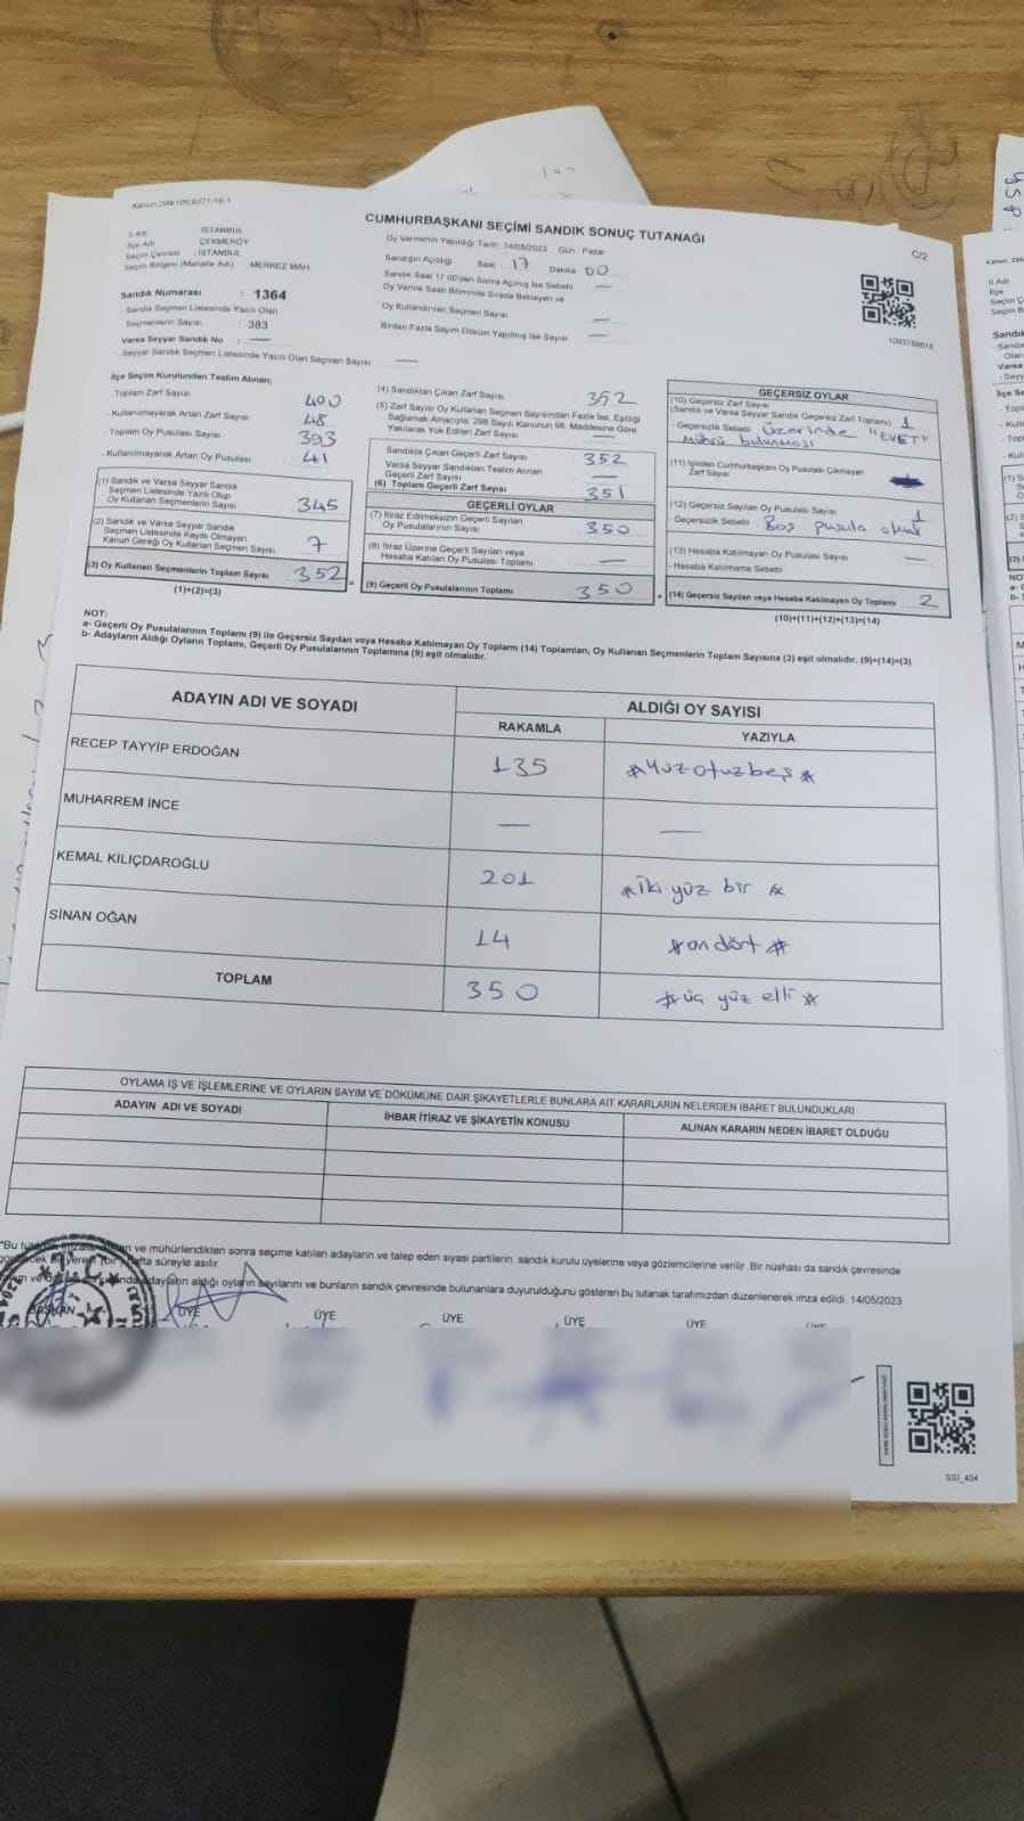 CUMHURBAŞKANI SEÇİMİ SANDIK SONUÇ TUTANAĞI
C/2
Oy Vermenin Yapıldığı Tarih: 14/05/2023 Gün: Pazar
İli Adı : İSTANBUL
İlçe Adı : ÇEKMEKÖY
Seçim Çevresi : İSTANBUL
Seçim Bölgesi (Mahalle Adı) : MERKEZ MAH.
Sandık Numarası : 1364
Sandık Seçmen Listesinde Yazılı Olan
Seçmenlerin Sayısı : 383
Varsa Seyyar Sandık No : —
Seyyar Sandık Seçmen Listesinde Yazılı Olan Seçmen Sayısı —
Sandığın Açıldığı Saat 17 Dakika 00
Sandık Saat 17.00'den Sonra Açılmış İse Sebebi —
Oy Verme Saati Bitiminde Sırada Bekleyen ve
Oy Kullandırılan Seçmen Sayısı —
Birden Fazla Sayım Döküm Yapılmış İse Sayısı —
İlçe Seçim Kurulundan Teslim Alınan;
Toplam Zarf Sayısı 400
Kullanılmayarak Artan Zarf Sayısı 48
Toplam Oy Pusulası Sayısı 393
Kullanılmayarak Artan Oy Pusulası 41
(1) Sandık ve Varsa Seyyar Sandık
Seçmen Listesinde Yazılı Olup
Oy Kullanan Seçmenlerin Sayısı 345
(2) Sandık ve Varsa Seyyar Sandık
Seçmen Listesinde Kayıtlı Olmayan
Kanun Gereği Oy Kullanan Seçmen Sayısı 7
(3) Oy Kullanan Seçmenlerin Toplam Sayısı 352
(1)+(2)=(3)
(4) Sandıktan Çıkan Zarf Sayısı 352
(5) Zarf Sayısı Oy Kullanan Seçmen Sayısından Fazla İse, Eşitliği
Sağlamak Amacıyla, 298 Sayılı Kanunun 98. Maddesine Göre
Yakılarak Yok Edilen Zarf Sayısı —
Sandıkta Çıkan Geçerli Zarf Sayısı 352
Varsa Seyyar Sandıktan Teslim Alınan
Geçerli Zarf Sayısı —
(6) Toplam Geçerli Zarf Sayısı 351
GEÇERLİ OYLAR
(7) İtiraz Edilmeksizin Geçerli Sayılan
Oy Pusulalarının Sayısı 350
(8) İtiraz Üzerine Geçerli Sayılan veya
Hesaba Katılan Oy Pusulası Toplamı —
(9) Geçerli Oy Pusulalarının Toplamı 350
GEÇERSİZ OYLAR
(10) Geçersiz Zarf Sayısı
(Sandık ve Varsa Seyyar Sandık Geçersiz Zarf Toplamı) 1
- Geçersizlik Sebebi Üzerinde "EVET"
mührü bulunması
(11) İçinden Cumhurbaşkanı Oy Pusulası Çıkmayan
Zarf Sayısı
(12) Geçersiz Sayılan Oy Pusulası Sayısı 1
Geçersizlik Sebebi Boş pusula olması
(13) Hesaba Katılmayan Oy Pusulası Sayısı —
- Hesaba Katılmama Sebebi
(14) Geçersiz Sayılan veya Hesaba Katılmayan Oy Toplamı 2
(10)+(11)+(12)+(13)=(14)
NOT:
a- Geçerli Oy Pusulalarının Toplamı (9) ile Geçersiz Sayılan veya Hesaba Katılmayan Oy Toplamı (14) Toplamları, Oy Kullanan Seçmenlerin Toplam Sayısına (3) eşit olmalıdır. (9)+(14)=(3)
b- Adayların Aldığı Oyların Toplamı, Geçerli Oy Pusulalarının Toplamına (9) eşit olmalıdır.
ADAYIN ADI VE SOYADI
ALDIĞI OY SAYISI
RAKAMLA
YAZIYLA
RECEP TAYYİP ERDOĞAN 135 *Yüzotuzbeş*
MUHARREM İNCE — —
KEMAL KILIÇDAROĞLU 201 *İki yüz bir*
SİNAN OĞAN 14 *on dört*
TOPLAM 350 *üç yüz elli*
OYLAMA İŞ VE İŞLEMLERİNE VE OYLARIN SAYIM VE DÖKÜMÜNE DAİR ŞİKAYETLERLE BUNLARA AİT KARARLARIN NELERDEN İBARET BULUNDUKLARI
ADAYIN ADI VE SOYADI
İHBAR İTİRAZ VE ŞİKAYETİN KONUSU
ALINAN KARARIN NEDEN İBARET OLDUĞU
ve mühürlendikten sonra seçime katılan adayların ve talep eden siyasi partilerin sandık kurulu üyelerine veya gözlemcilerine verilir. Bir nüshası da sandık çevresinde
hafta süreyle asılır.
adayların aldığı oyların sayılarını ve bunların sandık çevresinde bulunanlara duyurulduğunu gösteren bu tutanak tarafımızdan düzenlenerek imza edildi. 14/05/2023
BAŞKAN ÜYE ÜYE ÜYE ÜYE ÜYE
SSI_404